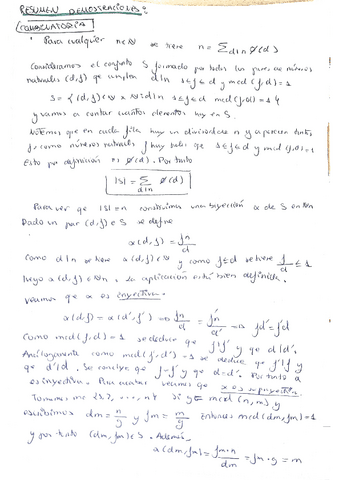 RESUMEN DEMOSTRACIONES:
COMBINATORIA
· Para cualquier n∈ℕ se tiene n = Σ_{d|n} φ(d)
Consideramos el conjunto S formado por todos los pares de números
naturales (d,f) que cumplen d|n 1≤f≤d y mcd(f,d)=1
S = {(d,f)∈ℕ×ℕ: d|n 1≤f≤d y mcd(f,d)=1}
y vamos a contar cuántos elementos hay en S.
Notemos que en cada fila hay un divisor de n y aparecen tantos
f, como números naturales f hay tales que 1≤f≤d y mcd(f,d)=1
Esto por definición es φ(d). Por tanto
|S| = Σ_{d|n} φ(d)
Para ver que |S|=n construimos una biyección α de S en ℕn
Dado un par (d,f)∈S se define
α(d,f) = fn/d
Como d|n se tiene α(d,f)∈ℕ y como f≤d se tiene f/d ≤1
luego α(d,f)∈ℕn, la aplicación está bien definida.
Veamos que α es inyectiva.
α(d,f) = α(d',f') ⇒ fn/d = f'n/d' ⇒ fd'=f'd
Como mcd(f,d)=1 se deduce que f|f' y que d|d'.
Análogamente como mcd(f',d')=1 se deduce que f'|f y
que d'|d. Se concluye que f=f' y que d=d'. Por tanto α
es inyectiva. Para acabar veamos que α es suprayectiva.
Tomamos m∈{1,2,...,n} Si g=mcd(n,m) y
escribimos dm = n/g y fm = m/g Entonces mcd(dm,fm)=1
y por tanto (dm,fm)∈S. Además,
α(dm,fm) = fm·n/dm = fm·g = m